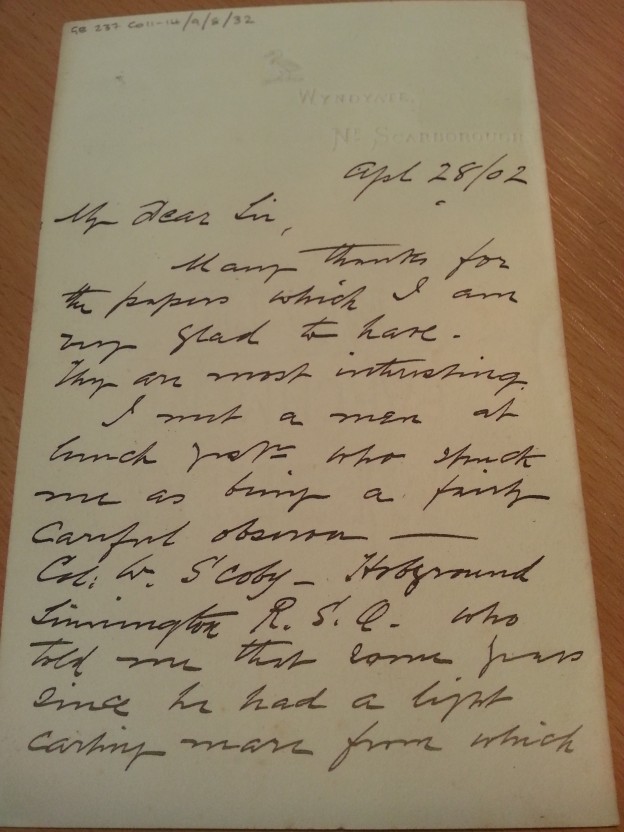 GB 237 Coll-14/9/8/32
WYNDYATE,
Nr SCARBOROUGH
Apl 28/02
My Dear Sir,
Many thanks for
the papers which I am
very glad to have.
They are most interesting.
I met a man at
lunch yesty who struck
me as being a fairly
careful observer —
Col: W. Scoby - Hobground
Sinnington R.S.O. who
told me that some years
since he had a light
carting mare from which